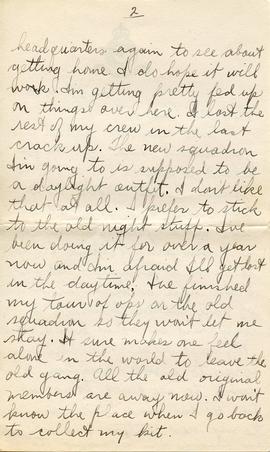 2
headquarters again to see about
getting home. I do hope it will
work. I'm getting pretty fed up
on things over here. I lost the
rest of my crew in the last
crack up. The new squadron
I'm going to is supposed to be
a daylight outfit. I dont like
that at all. I prefer to stick
to the old night stuff. I've
been doing it for over a year
now and I'm afraid I'll get lost
in the daytime. I've finished
my tour of ops on the old
squadron so they won't let me
stay. It sure makes one feel
alone in the world to leave the
old gang. All the old original
members are away now. I won't
know the place when I go back
to collect my kit.